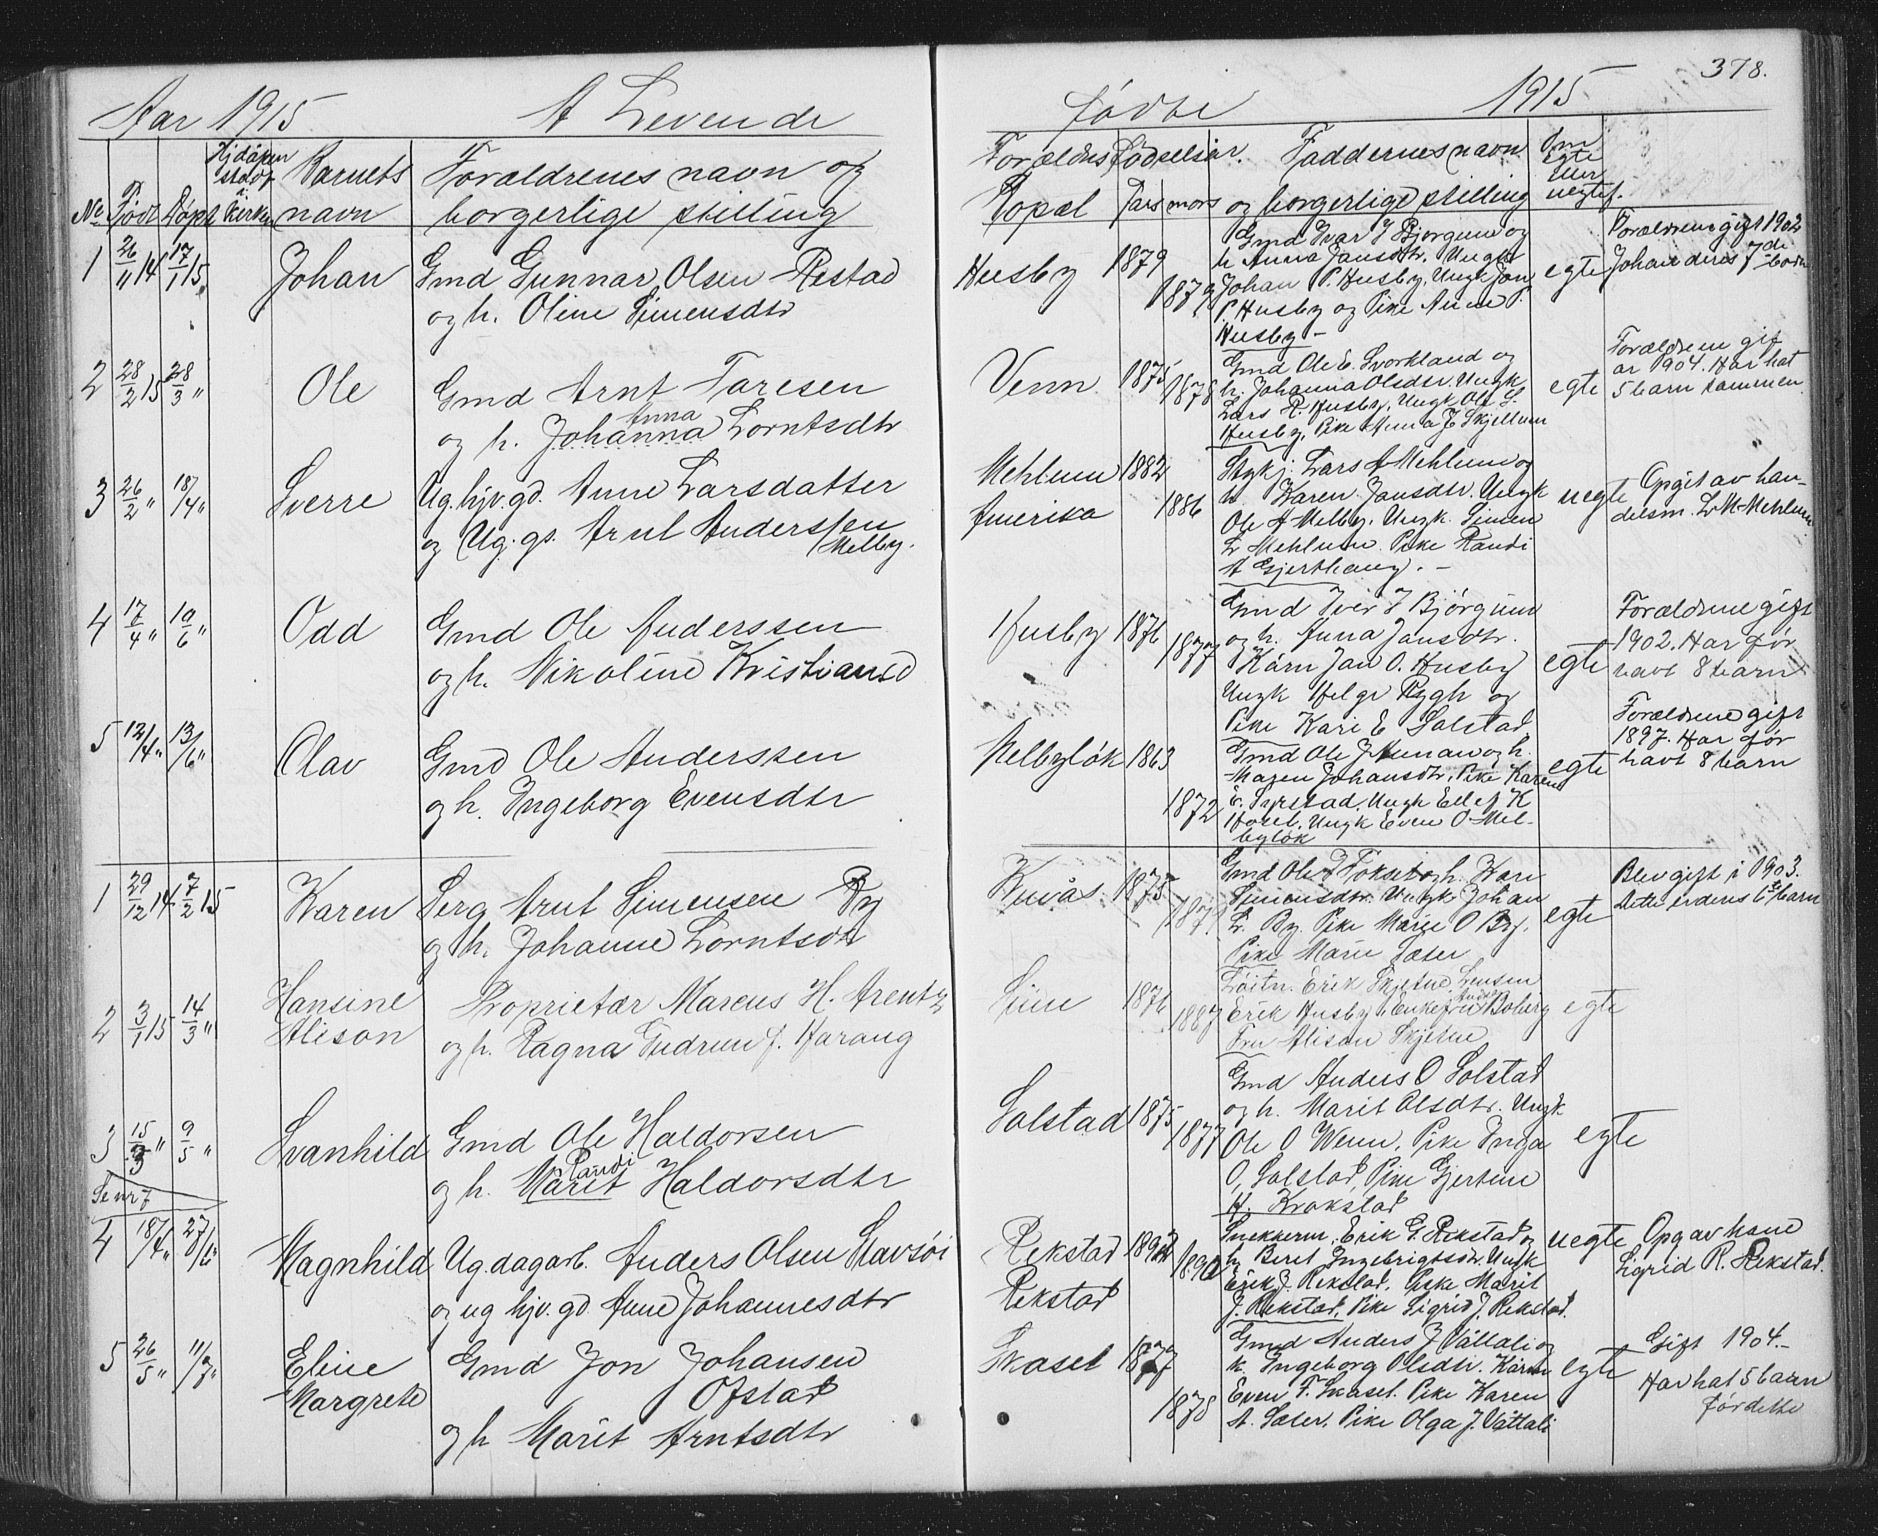 378.
Aar 1915 A Levende
fødte 1915
No Født Døpt Hjdøpen stadf i kirken Barnets navn Forældrenes navn og borgerlige stilling
Forældres Fødselsaar. Faddernes navn Om Egte Eller uegtef.
Bopæl Fars mors og borgerlige stilling
1 26/11 14 17/1 15 Johan Gmd Gunnar Olsen Restad
og h. Oline Simensdtr
Husby 1879 1879
Gmd Ivar J Bjørgum og
h. Anna Jansdtr. Ungk
Johan P. Husby, Ungk Jon
P. Husby og Pike Anne P.
Husby –
egte
Forældrene gift 1902
Johan deres 7de barn
2 28/2 15 28/3 " Ole Gmd Arnt Taresen
Anna
og h. Johanna Lorntsdtr
Venn 1875 1878
Gmd Ole E. Svorkland og
h. Johanna Olsdtr. Ungk
Lars R. Husby, Ungk Ole G.
Husby, Pike Anna J Skjellum
egte
Forældrene gif
ar 1904. Har hat
5 barn sammen
3 26/2 " 18/4 " Sverre Ug. hjv. gd. Anne Larsdatter
og Ug. gs. Arnt Anderssen
Melby.
Mehlum 1882
Amerika 1886
Stykj. Lars A Mehlum og
h. Karen Jansdtr. Ungk
Ole A Melby. Ungk. Simen
L Mehlum. Pike Randi
A Gjerthaug. –
uegte
Opgit av han-
delsm. L M Mehlum
4 17/4 " 10/6 " Odd Gmd Ole Anderssen
og h. Nikoline Kristiansd
Husby 1876 1877
Gmd Iver J Bjørgum
og h. Anna Jansdtr.
Kårm Jan O. Husby
Ungk Helge Rygh og
Pike Kari E Solstad
egte
Forældrene gift
1902. Har før
havt 8 barn
5 12/4 " 13/6 " Olav Gmd Ole Anderssen
og h. Ingeborg Evensdtr
Melbyløk 1863 1872
Gmd Ole J Aunan og h.
Maren Johansdtr, Pike Karen
Syrstad, Ungk Ellef K
Hovel, Ungk Even O Mel-
byløk
egte
Forældrene gift
1897. Har før
havt 8 barn
1 29/12 14 7/2 15 Karen Serg Arnt Simensen By
og h. Johanne Lorntsdtr
Kuvås 1875
Simensdtr. Ungk Johan
L. By. Pike Marie O By.
Pike Marie Sæter
egte
Blev gift i 1903.
Dette er deres 6te barn
2 3/1 15 14/3 " Hansine
Alison
Proprietær Marcus H. Arentz
og h. Ragna Gudrun f. Harang
1876 1887
Løitn. Erik Skjetne
Fru Alison Skjetne
egte
3 15/3 " 9/5 " Svanhild Gmd Ole Haldorsen
Randi
og h. Marit Haldorsdtr
Solstad 1875 1877
Gmd Anders O Solstad
og h. Marit Olsdtr. Ungk
Ole O Wenn, Pike Inga
O, Solstad, Pike Gjertine
H. Krokstad
egte
Se nr 7
4 18/4 " 27/6 " Magnhild Ug. dagarb. Anders Olsen Stavsøi
og ug hjv. gd Anne Johannesdtr
Rekstad 1892 1890
Rekstad
Snekkerm, Erik G. Rekstad og
h. Beret Ingebrigtsdtr. Ungk
Erik J. Rekstad, Pike Marit
J. Rekstad, Pike Sigrid J. Rekstad.
uegte
Opg av hane
Sigrid R. Rekstad.
5 26/5 " 11/7 " Eline
Margrete
Gmd Jon Johansen
Ofstad
og h Marit Arntsdtr
Skasel 1877 1878
Gmd Anders J Våttali og
k. Ingeborg Olsdtr. Kårm
Even F. Skasel. Pike Karen
A. Sæter. Pike Olga J. Våttali
egte
Gift 1904.–
Har hat 5 barn
før dette